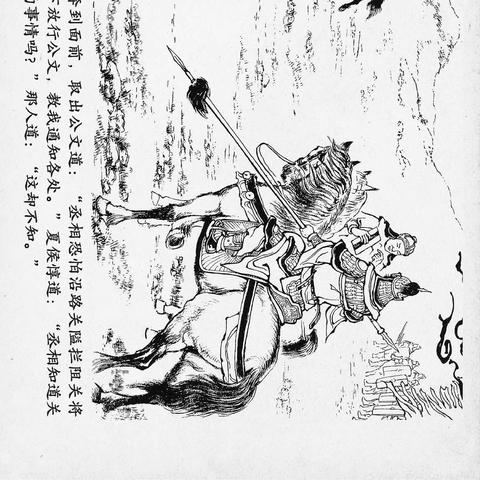 奔到面前，取出公文道：“丞相恐怕沿路关隘拦阻关将
放行公文，教我通知各处。”夏侯惇道：“丞相知道关
的事情吗？”那人道：“这却不知。”